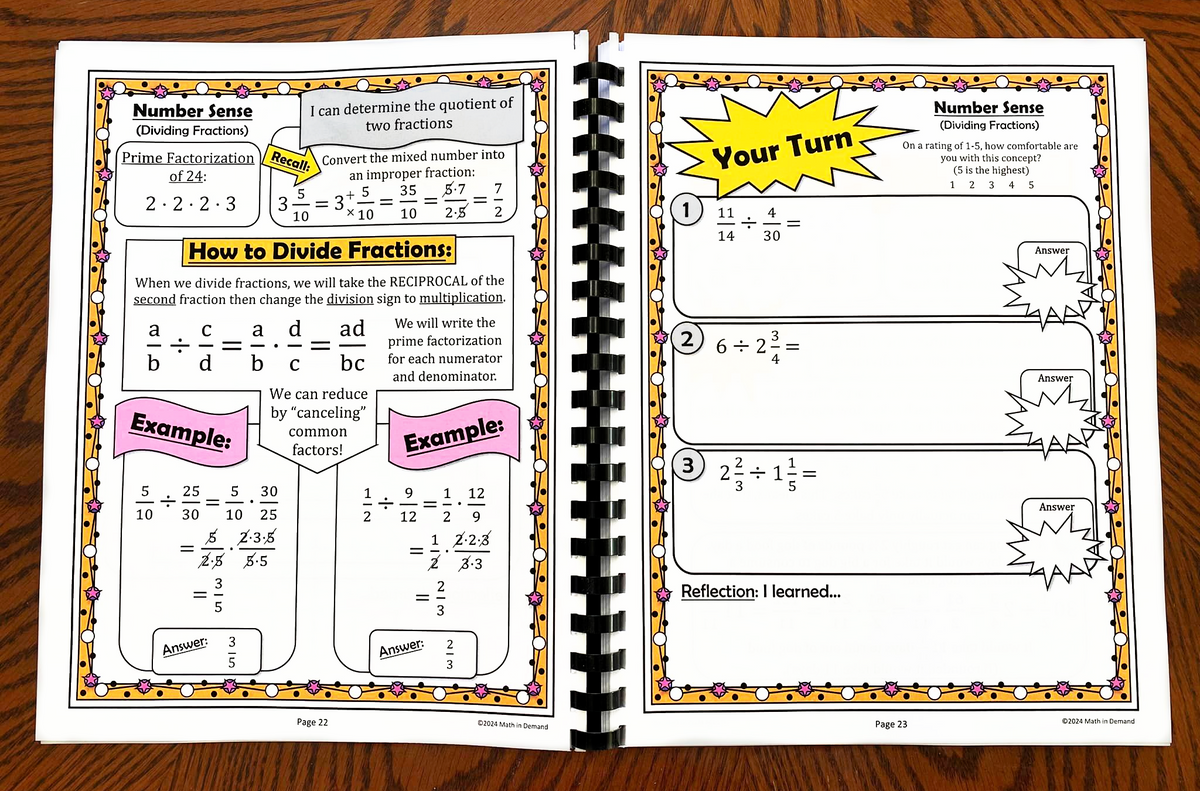 Number Sense
(Dividing Fractions)
I can determine the quotient of
two fractions
Prime Factorization
of 24:
2 · 2 · 2 · 3
Recall:
Convert the mixed number into
an improper fraction:
3 5/10 = 3 + 5 / × 10 = 35/10 = 5·7/2·5 = 7/2
How to Divide Fractions:
When we divide fractions, we will take the RECIPROCAL of the
second fraction then change the division sign to multiplication.
a/b ÷ c/d = a/b · d/c = ad/bc
We will write the
prime factorization
for each numerator
and denominator.
We can reduce
by “canceling”
common
factors!
Example:
5/10 ÷ 25/30 = 5/10 · 30/25
= 5/2·5 · 2·3·5/5·5
= 3/5
Answer: 3/5
Example:
1/2 ÷ 9/12 = 1/2 · 12/9
= 1/2 · 2·2·3/3·3
= 2/3
Answer: 2/3
Page 22
©2024 Math in Demand
Your Turn
Number Sense
(Dividing Fractions)
On a rating of 1-5, how comfortable are
you with this concept?
(5 is the highest)
1 2 3 4 5
1
11/14 ÷ 4/30 =
Answer
2
6 ÷ 2 3/4 =
Answer
3
2 2/3 ÷ 1 1/5 =
Answer
Reflection: I learned...
Page 23
©2024 Math in Demand